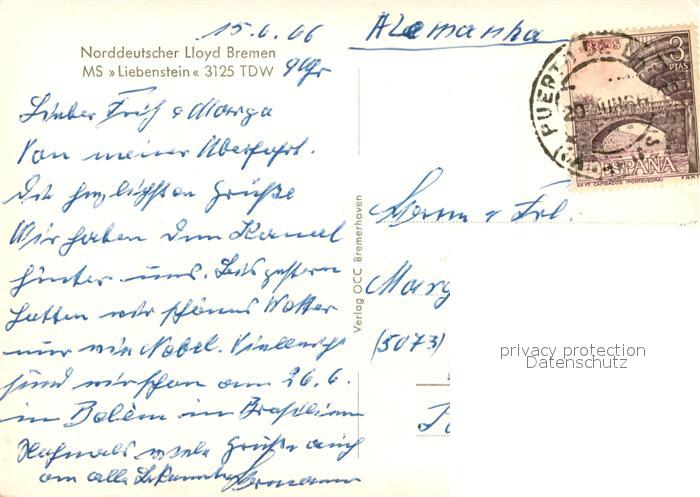 15.6.66
Alemanha
Norddeutscher Lloyd Bremen
MS »Liebenstein« 3125 TDW
9 Uhr
Lieber Fritz & Marga
Von meiner Überfahrt.
Die herzlichsten Grüße
Wir haben den Kanal
hinter uns. Bis gestern
hatten wir schönes Wetter
nur wie Nebel. Vielleicht
sind wir schon am 26.6.
in Belém in Brasilien
Nochmals viele Grüße auch
an alle Bekannte Hermann
Verlag OCC Bremerhaven
3
PTAS
ESPAÑA
PUERT
CAMBADOS (PONTEVEDRA)
Herrn u Frl.
Marg
(5073)
privacy protection
Datenschutz